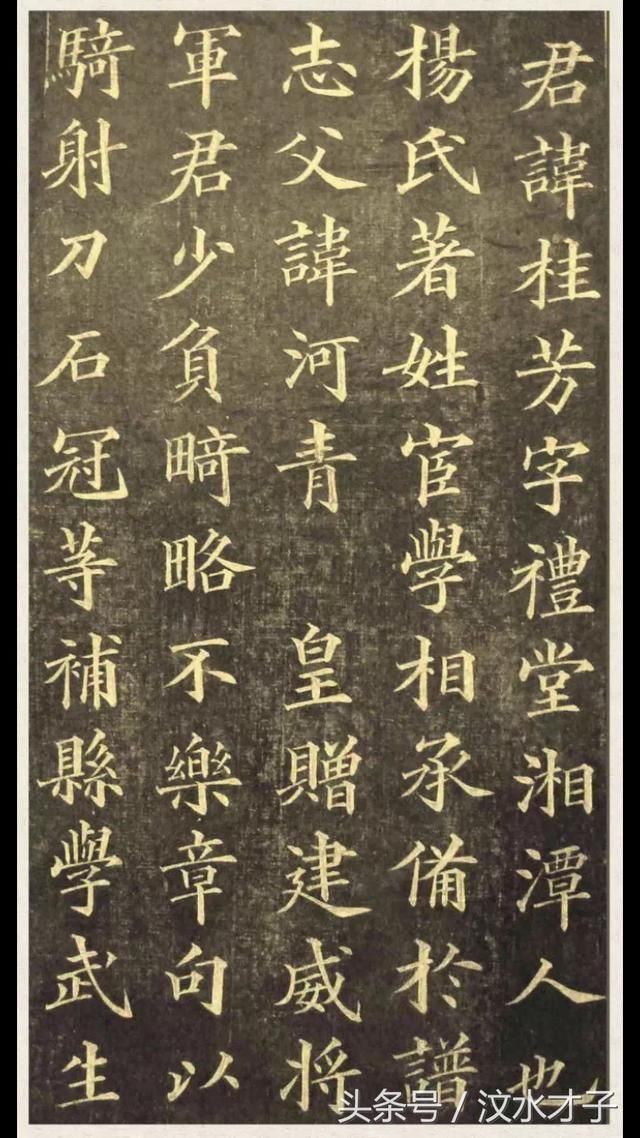 君諱桂芳字禮堂湘潭人也
楊氏著姓宦學相承備於譜
志父諱河青　皇贈建威将
軍君少負畸略不樂章句以
騎射刀石冠等補縣學武生
头条号 / 汶水才子